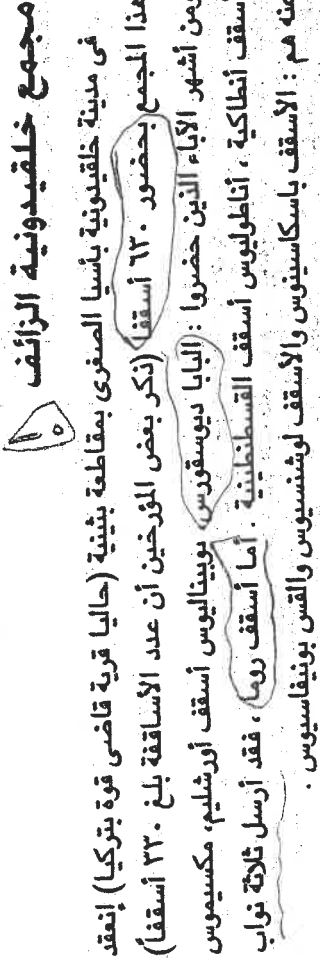 مجمع خلقيدونية الزائف
فى مدينة خلقيدونية بأسيا الصغرى بمقاطعة بثينية (حاليا قرية قاضى قوة بتركيا) إنعقد
هذا المجمع بحضور ٦٣٠ أسقفاً (ذكر بعض المؤرخين أن عدد الأساقفة بلغ ٣٣٠ أسقفاً)
ومن أشهر الآباء الذين حضروا : البابا ديوسقورس، يوبيناليوس أسقف أورشليم، مكسيموس
أسقف أنطاكية ، أناطوليوس أسقف القسطنطينية . أما أسقف روما ، فقد أرسل ثلاثة نواب
عنه هم : الأسقف باسكاسينوس والأسقف لوشنسيوس والقس بونيفاسيوس .